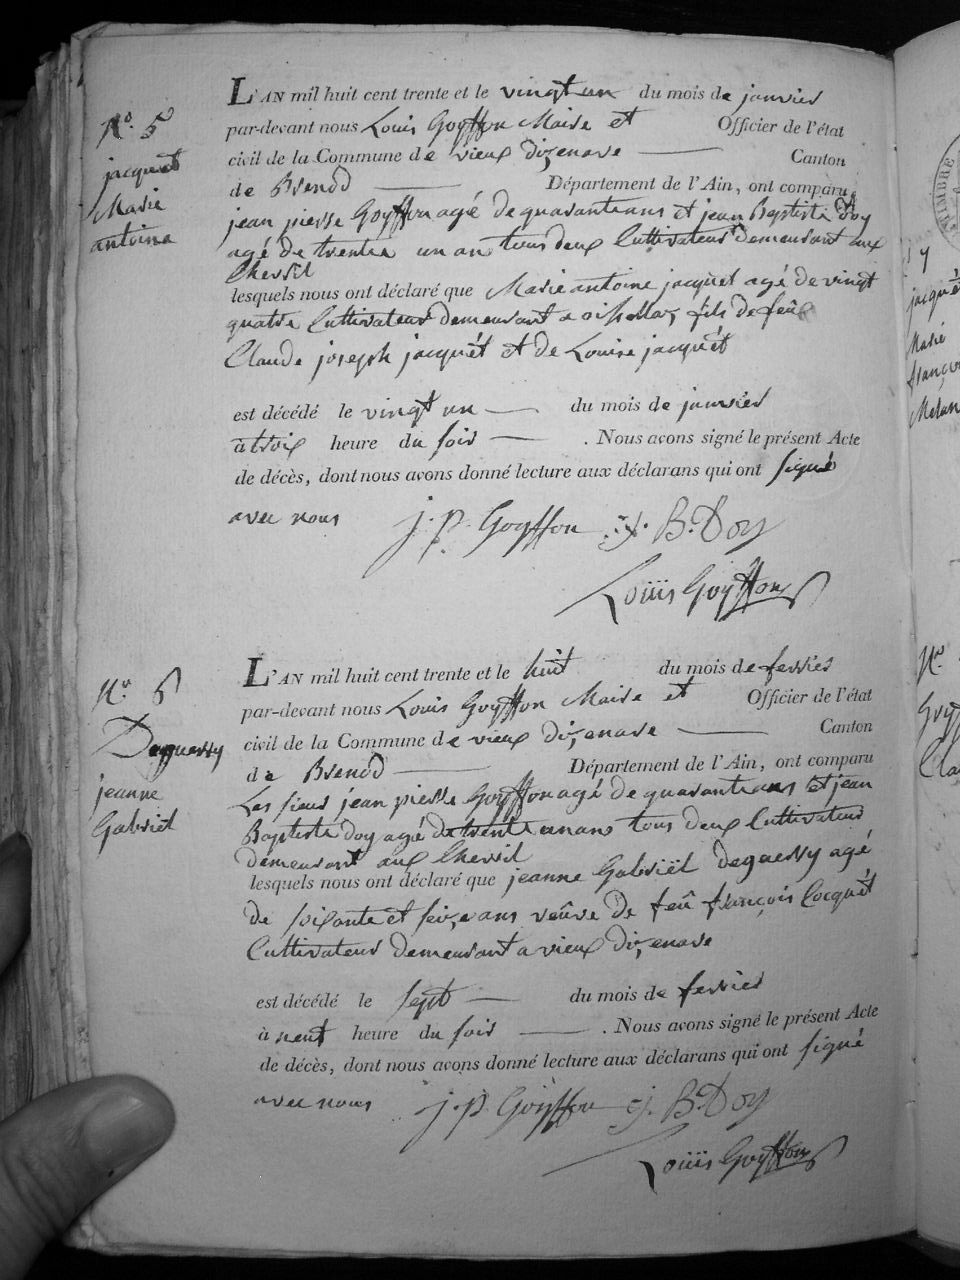 N.o 5
jacquet
Marie
antoine
L'AN mil huit cent trente et le vingt un du mois de janvier
par-devant nous Louis Goyffon Maire et Officier de l'état
civil de la Commune de vieux dizenave Canton
de Brenod Département de l'Ain, ont comparu
jean pierre Goyffon agé de quarante ans et jean Baptiste Doy
agé de trente un an tous deux Cultivateur demeurant aux
Chevril
lesquels nous ont déclaré que Marie antoine jacquet agé de vingt
quatre Cultivateur demeurant a oisselaz fils de feû
Claude joseph jacquét et de Louise jacquét
est décédé le vingt un du mois de janvier
à troix heure du soir . Nous avons signé le présent Acte
de décès, dont nous avons donné lecture aux déclarans qui ont signé
avec nous J. P. Goyffon J. B. Doy
Louiis Goyffon
N.o 6
Deguerry
jeanne
Gabriel
L'AN mil huit cent trente et le huit du mois de fevrier
par-devant nous Louis Goyffon Maire et Officier de l'état
civil de la Commune de vieux dizenave Canton
de Brenod Département de l'Ain, ont comparu
Les sieur jean pierre Goyffon agé de quarante ans et jean
Baptiste doy agé de trente un ans tous deux Cultivateur
demeurant aux Chevril
lesquels nous ont déclaré que jeanne Gabriël deguerry agé
de soixante et seize ans veûve de feû françois Cocquét
Cultivateur demeurant a vieux dizenave
est décédé le sept du mois de fevrier
à neuf heure du soir . Nous avons signé le présent Acte
de décès, dont nous avons donné lecture aux déclarans qui ont signé
avec nous J. P. Goyffon J. B. Doy
Louiis Goyffon
7
jacquét
Marie
françoi
Melan
N.o
Goyf
Cla